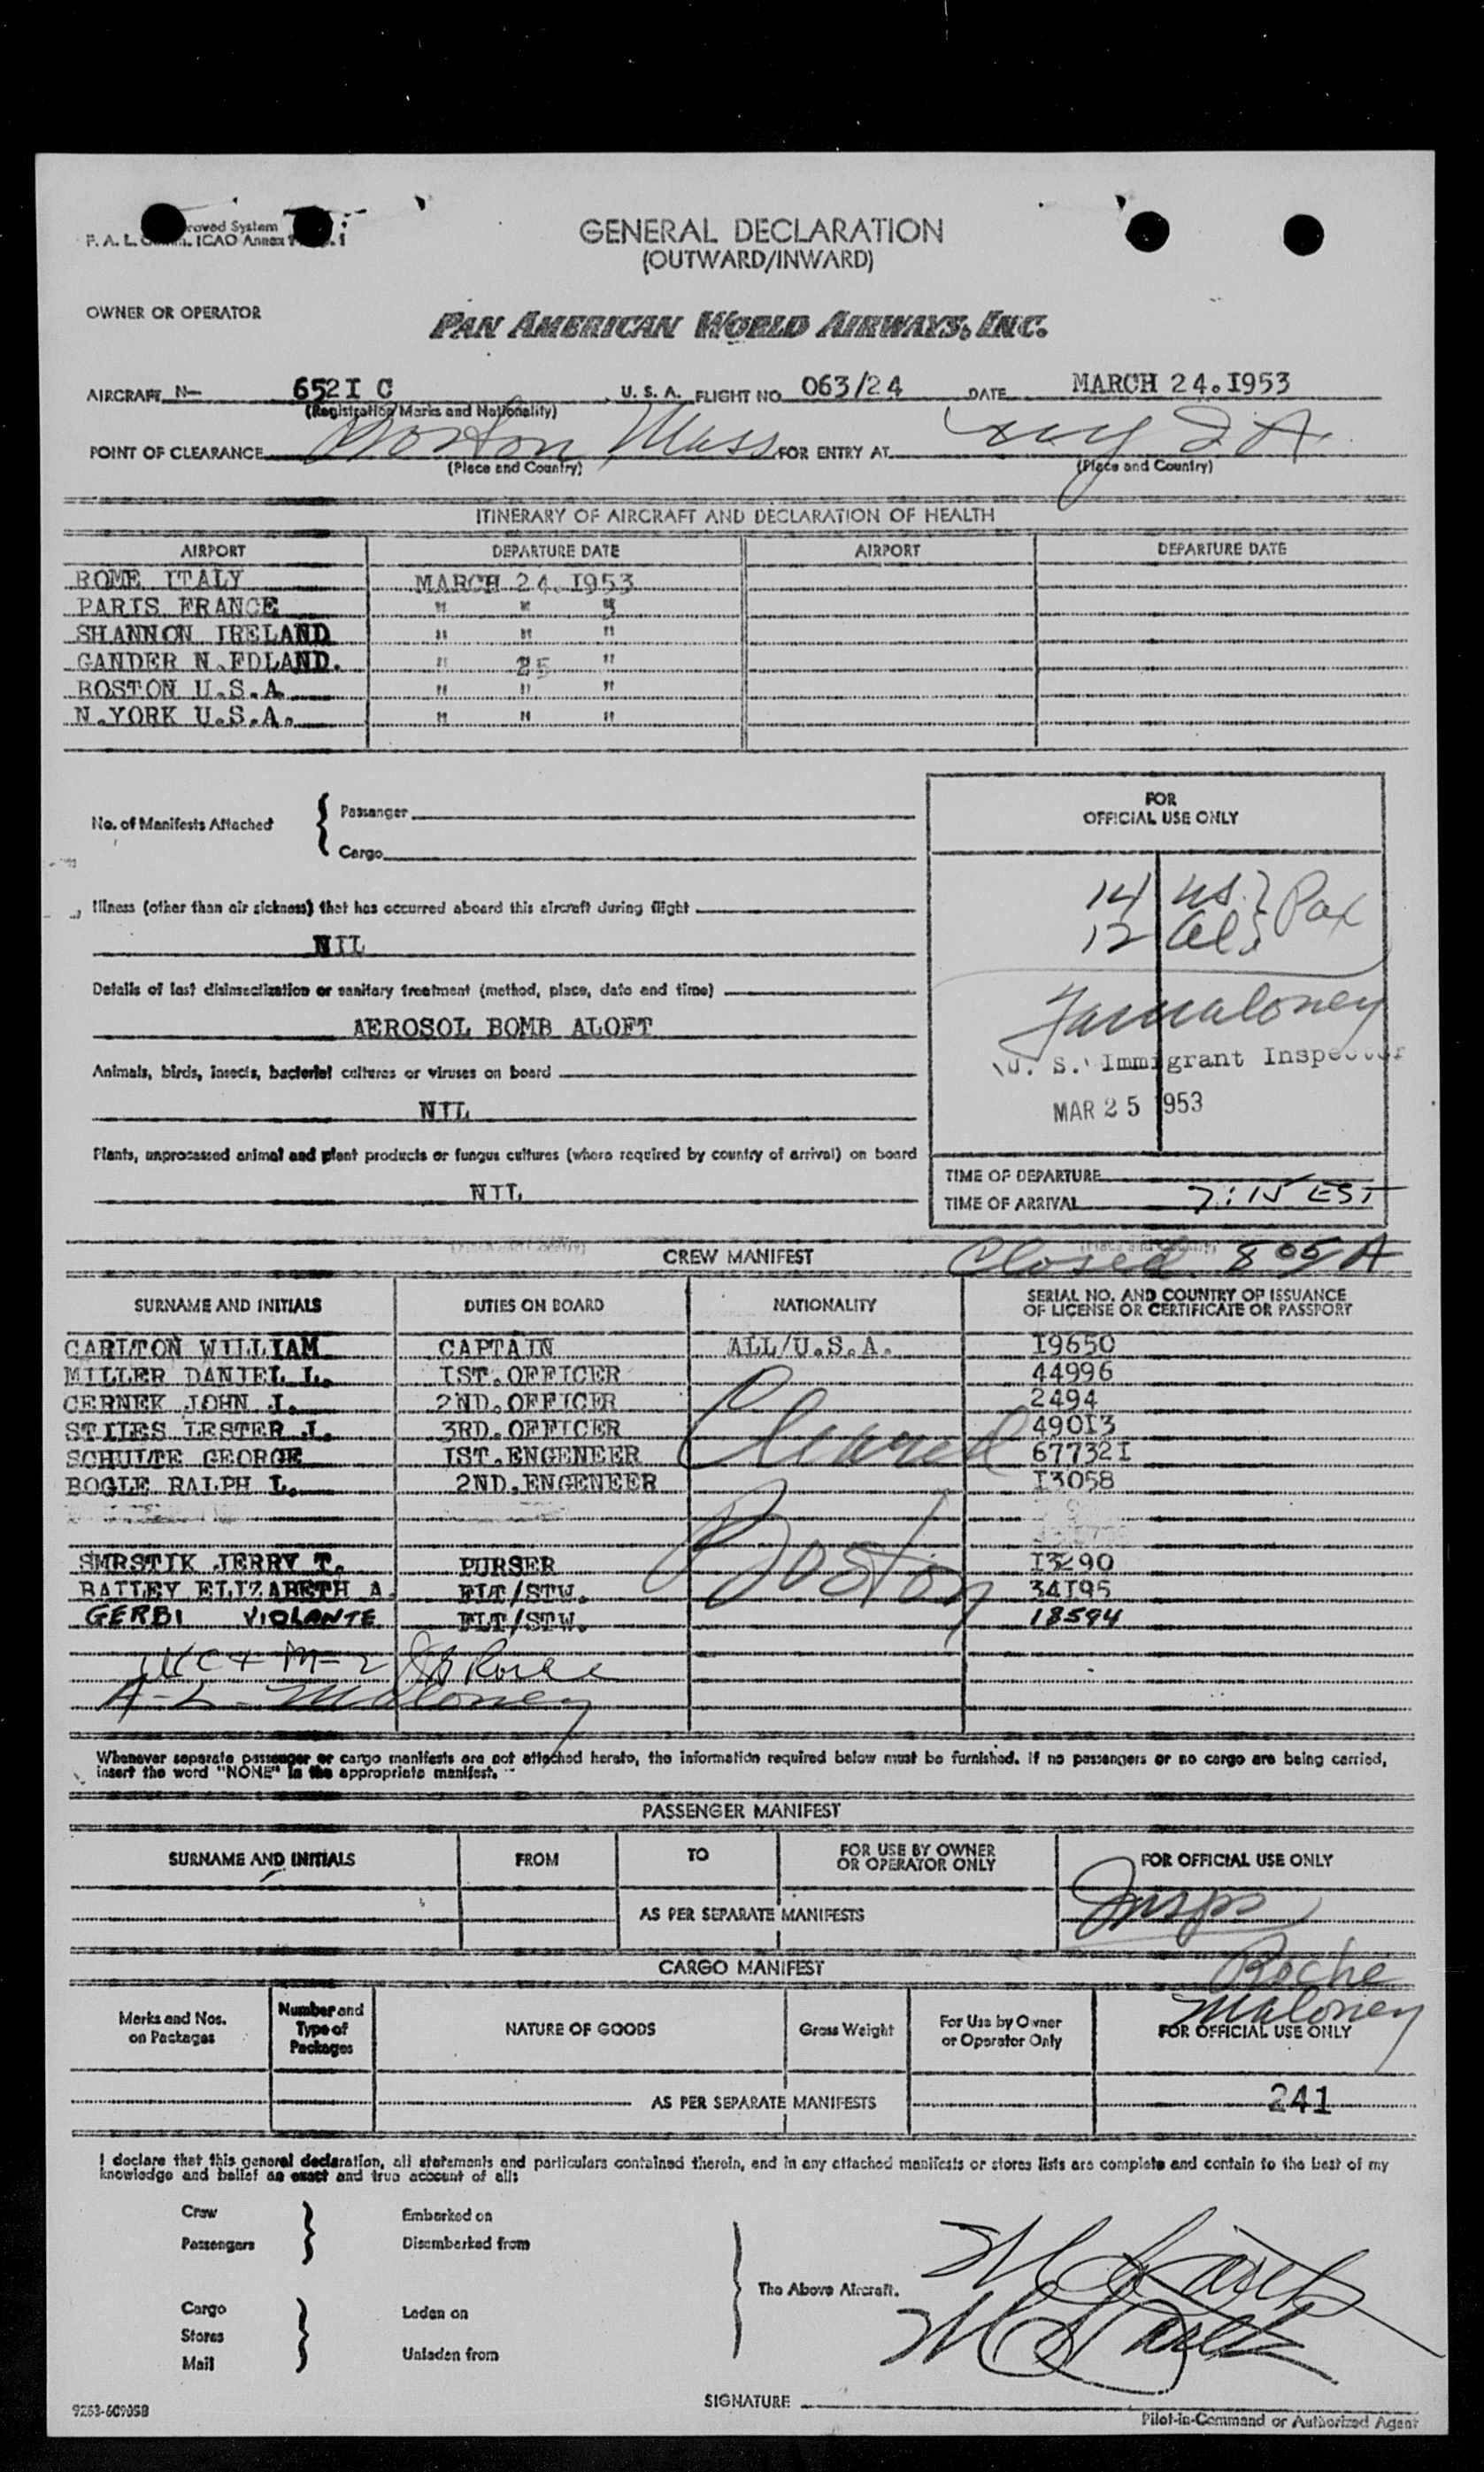 GENERAL DECLARATION
(OUTWARD/INWARD)
roved System
F. A. L. ICAO Annex
OWNER OR OPERATOR
PAN AMERICAN WORLD AIRWAYS, INC.
AIRCRAFT N- 652I C U. S. A. FLIGHT NO. 063/24 DATE MARCH 24.I953
(Registration Marks and Nationality)
POINT OF CLEARANCE Boston, Mass FOR ENTRY AT
(Place and Country) (Place and Country)
ITINERARY OF AIRCRAFT AND DECLARATION OF HEALTH
AIRPORT DEPARTURE DATE AIRPORT DEPARTURE DATE
ROME ITALY MARCH 24.I953
PARIS FRANCE " " "
SHANNON IRELAND " " "
GANDER N.FDLAND. " 25 "
BOSTON U.S.A " " "
N.YORK U.S.A. " " "
No. of Manifests Attached { Passenger
Cargo
Illness (other than air sickness) that has occurred aboard this aircraft during flight
NIL
Details of last disinsectization or sanitary treatment (method, place, date and time)
AEROSOL BOMB ALOFT
Animals, birds, insects, bacterial cultures or viruses on board
NIL
Plants, unprocessed animal and plant products or fungus cultures (where required by country of arrival) on board
NIL
FOR
OFFICIAL USE ONLY
14 US } Pax
12 Al
Maloney
U. S. Immigrant Inspector
MAR 25 1953
TIME OF DEPARTURE
TIME OF ARRIVAL 7:15 EST
CREW MANIFEST Closed 8 05 A
SURNAME AND INITIALS DUTIES ON BOARD NATIONALITY SERIAL NO. AND COUNTRY OF ISSUANCE
OF LICENSE OR CERTIFICATE OR PASSPORT
CARLTON WILLIAM CAPTAIN ALL/U.S.A. I9650
MILLER DANIEL L. IST.OFFICER 44996
CERNEK JOHN J. 2ND.OFFICER 2494
STILES LESTER J. 3RD.OFFICER 490I3
SCHULTE GEORGE IST.ENGENEER 67732I
BOGLE RALPH L. 2ND.ENGENEER I3058
Cleared
Boston
SMRSTIK JERRY T. PURSER I3290
BAILEY ELIZABETH A. FLT/STW. 34I95
GERBI VIOLANTE FLT/STW. 18594
Maloney
Whenever separate passenger or cargo manifests are not attached hereto, the information required below must be furnished. If no passengers or no cargo are being carried,
insert the word "NONE" in the appropriate manifest.
PASSENGER MANIFEST
SURNAME AND INITIALS FROM TO FOR USE BY OWNER
OR OPERATOR ONLY FOR OFFICIAL USE ONLY
AS PER SEPARATE MANIFESTS Insps
CARGO MANIFEST Roche
Maloney
Marks and Nos.
on Packages Number and
Type of
Packages NATURE OF GOODS Gross Weight For Use by Owner
or Operator Only FOR OFFICIAL USE ONLY
AS PER SEPARATE MANIFESTS 241
I declare that this general declaration, all statements and particulars contained therein, and in any attached manifests or stores lists are complete and contain to the best of my
knowledge and belief an exact and true account of all:
Crew Embarked on
Passengers Disembarked from
The Above Aircraft.
Cargo Laden on
Stores
Mail Unladen from
SIGNATURE
Pilot-in-Command or Authorized Agent